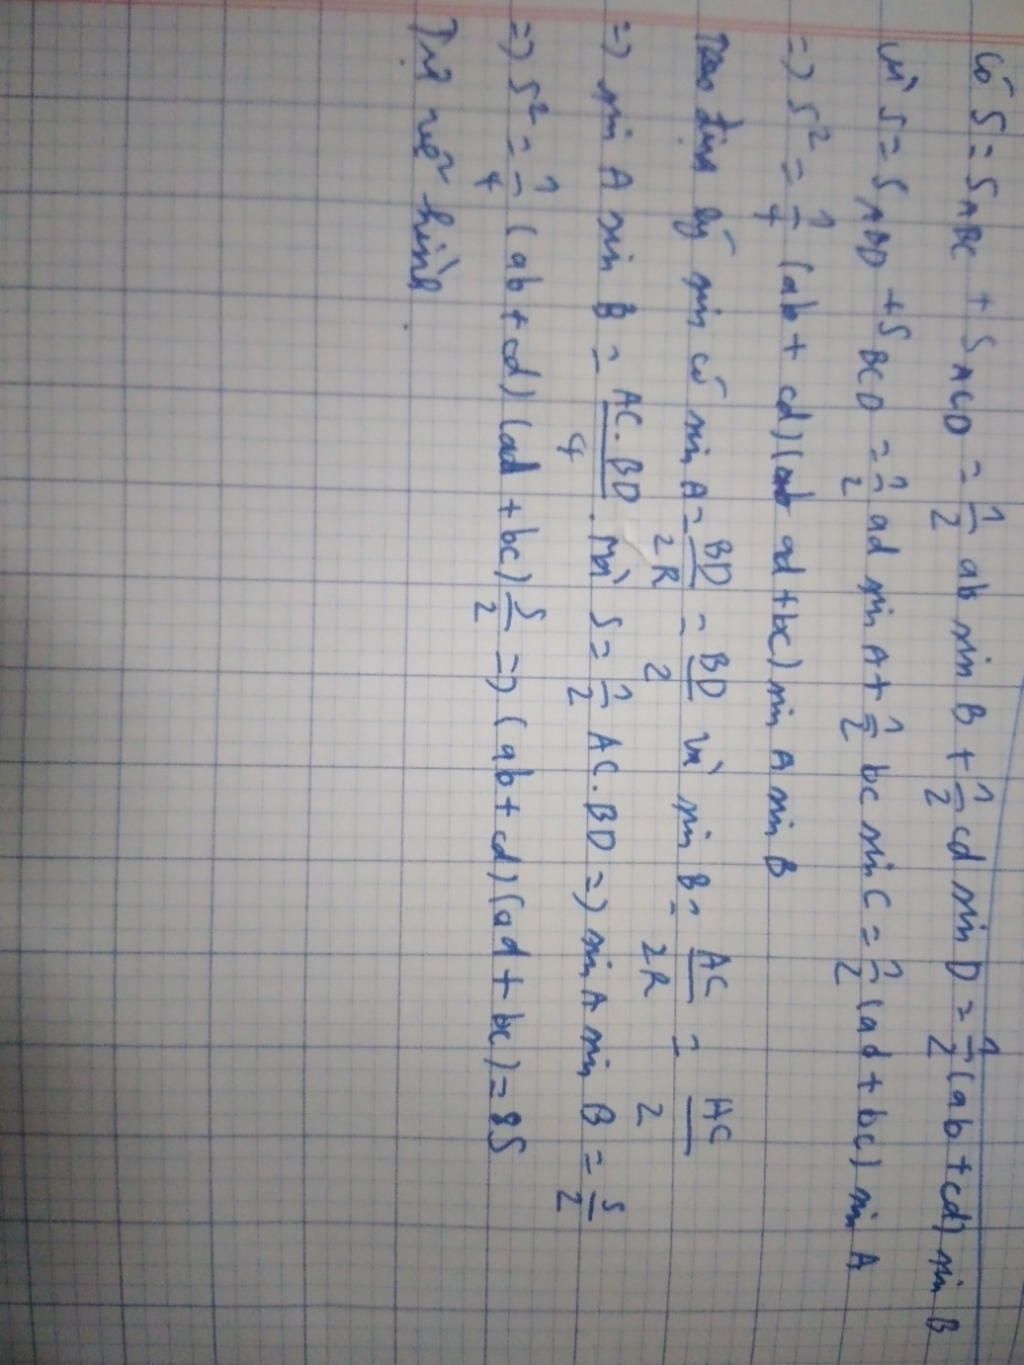 Có S = S_ABC + S_ACD = 1/2 ab sin B + 1/2 cd sin D = 1/2 (ab + cd) sin B
Vì S = S_ABD + S_BCD = 1/2 ad sin A + 1/2 bc sin C = 1/2 (ad + bc) sin A
=> S² = 1/4 (ab + cd) (ad + bc) sin A sin B
Theo định lý sin có sin A = BD/2R = BD/2 và sin B = AC/2R = AC/2
=> sin A sin B = AC.BD/4 . Mà S = 1/2 AC.BD => sin A sin B = S/2
=> S² = 1/4 (ab + cd) (ad + bc) S/2 => (ab + cd) (ad + bc) = 8S
Tự vẽ hình.